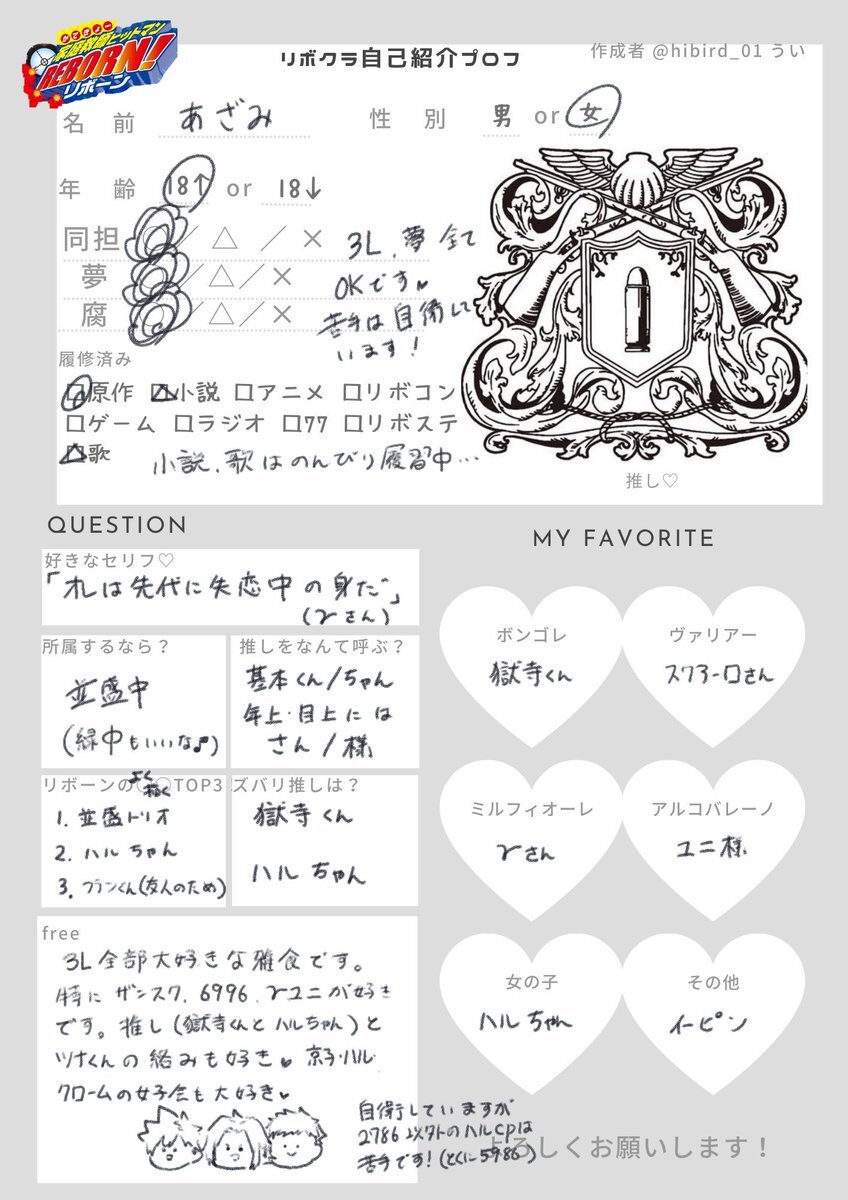 かてきょー
家庭教師ヒットマン
REBORN!
リボーン
リボクラ自己紹介プロフ
作成者 @hibird_01 うい
名 前 あざみ 性 別 男 or 女
年 齢 18↑ or 18↓
同担 ◎ / △ / ×
夢 ◎/△/×
腐 ◎/△/×
3L、夢 全て
OKです♥
苦手は自衛して
います!
履修済み
□原作 □小説 □アニメ □リボコン
□ゲーム □ラジオ □77 □リボステ
□歌 小説、歌はのんびり履習中…
推し♡
QUESTION
好きなセリフ♡
「オレは先代に失恋中の身だ」
(γさん)
所属するなら?
並盛中
(緑中もいいな♪)
推しをなんて呼ぶ?
基本くん/ちゃん
年上・目上には
さん/様
リボーンの♡♡TOP3
よく
描く
1. 並盛トリオ
2. ハルちゃん
3. フランくん(友人のため)
ズバリ推しは?
獄寺くん
ハルちゃん
MY FAVORITE
ボンゴレ
獄寺くん
ヴァリアー
スクアーロさん
ミルフィオーレ
γさん
アルコバレーノ
ユニ様
女の子
ハルちゃん
その他
イーピン
free
3L全部大好きな雑食です。
特に ザンスク、6996、γユニが好き
です。推し(獄寺くんとハルちゃん)と
ツナくんの絡みも好き♥ 京子・ハル・
クロームの女子会も大好き♥
自衛していますが
2786以外のハルcpは
苦手です!(とくに5986)
よろしくお願いします!